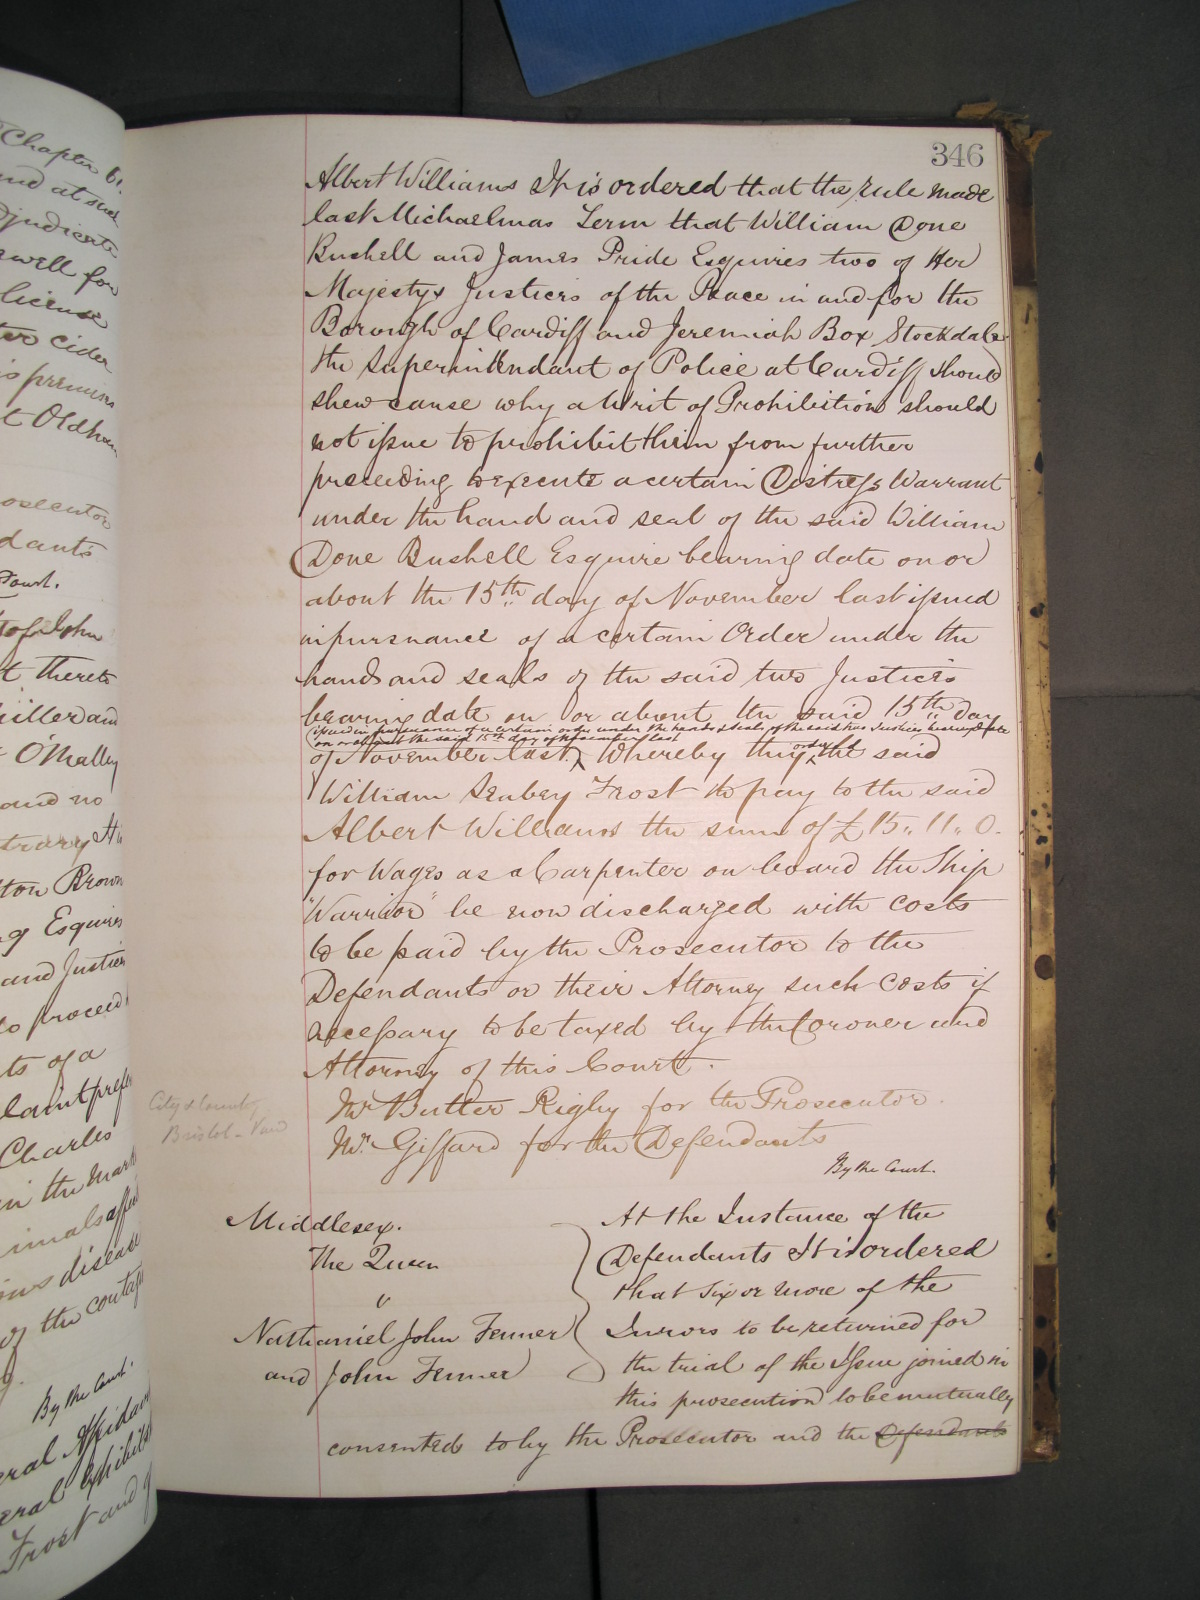 Chapter 61.
and at such
adjudicate
well for
license
cider
premises
at Oldham
Prosecutor
dants
Court.
of John
t thereto
Miller and
O'Malley
and no
trary It
ton Brown
g Esquires
and Justices
to proceed
ts of a
laint prefe
Charles
in the Mar
imals affe
ous disease
of the contag
By the Court.
eral Affidav
eral Exhibits
Frost and
346
Albert Williams It is ordered that the rule made
last Michaelmas Term that William Done
Bushell and James Pride Esquires two of Her
Majestys Justices of the Peace in and for the
Borough of Cardiff and Jeremiah Box Stockdale
the Superintendant of Police at Cardiff should
shew cause why a Writ of Prohibition should
not issue to prohibit them from further
proceeding to execute a certain Distress Warrant
under the hand and seal of the said William
Done Bushell Esquire bearing date on or
about the 15th day of November last issued
in pursuance of a certain Order under the
hands and seals of the said two Justices
bearing date on or about the said 15th day
issued in pursuance of a certain order under the hands & seals of the said two Justices bearing date
on or about the said 15th day of November last
of November last Whereby they ordered the said
William Seabey Frost to pay to the said
Albert Williams the sum of £15,, 11,, 0.
for Wages as a Carpenter on board the Ship
"Warrior" be now discharged with costs
to be paid by the Prosecutor to the
Defendants or their Attorney such costs if
necessary to be taxed by the Coroner and
Attorney of this Court.
City & County
Bristol -
Mr Butler Rigby for the Prosecutor.
Mr. Giffard for the Defendants
By the Court.
Middlesex.
The Queen
v
Nathaniel John Fenner
and John Fenner
At the Instance of the
Defendants It is ordered
that six or more of the
Jurors to be returned for
the trial of the Issue joined in
this prosecution to be mutually
consented to by the Prosecutor and the Defendants